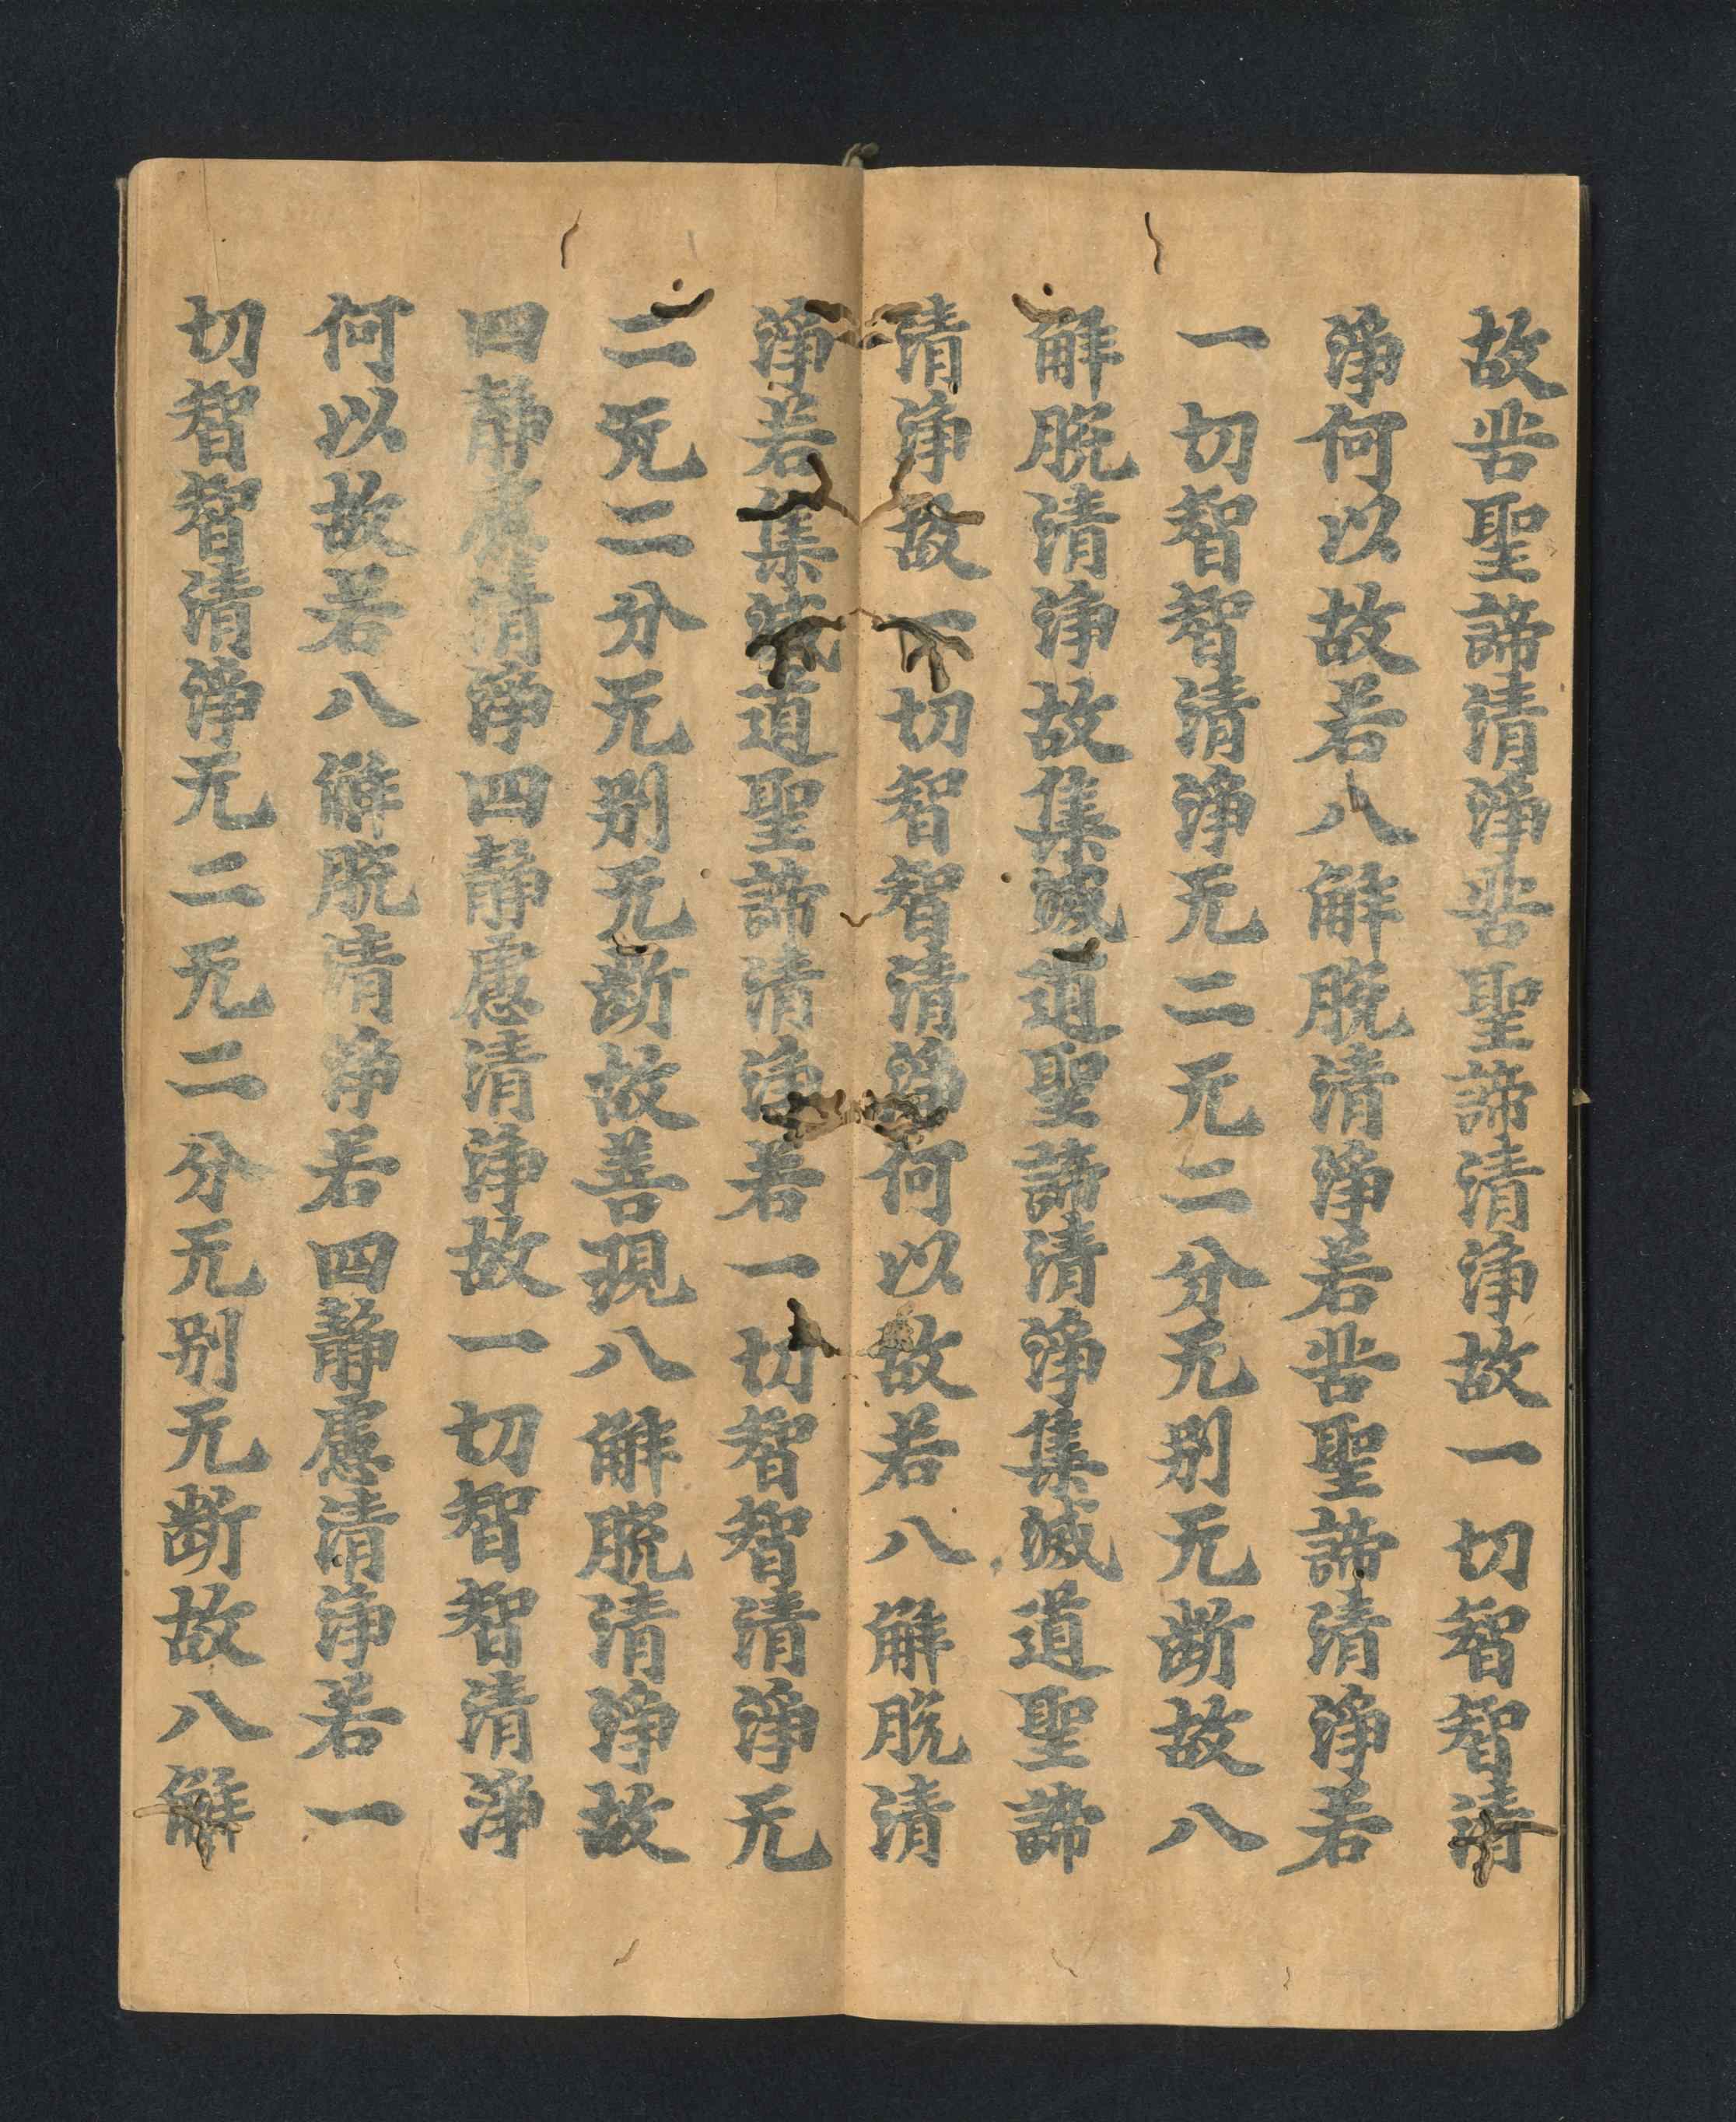 故苦聖諦清淨苦聖諦清淨故一切智智清
淨何以故若八解脫清淨若苦聖諦清淨若
一切智智清淨无二无二分无別无断故八
解脫清淨故集滅道聖諦清淨集滅道聖諦
清淨故一切智智清淨何以故若八解脫清
淨若集滅道聖諦清淨若一切智智清淨无
二无二分无別无断故善現八解脫清淨故
四靜慮清淨四靜慮清淨故一切智智清淨
何以故若八解脫清淨若四靜慮清淨若一
切智智清淨无二无二分无別无断故八解